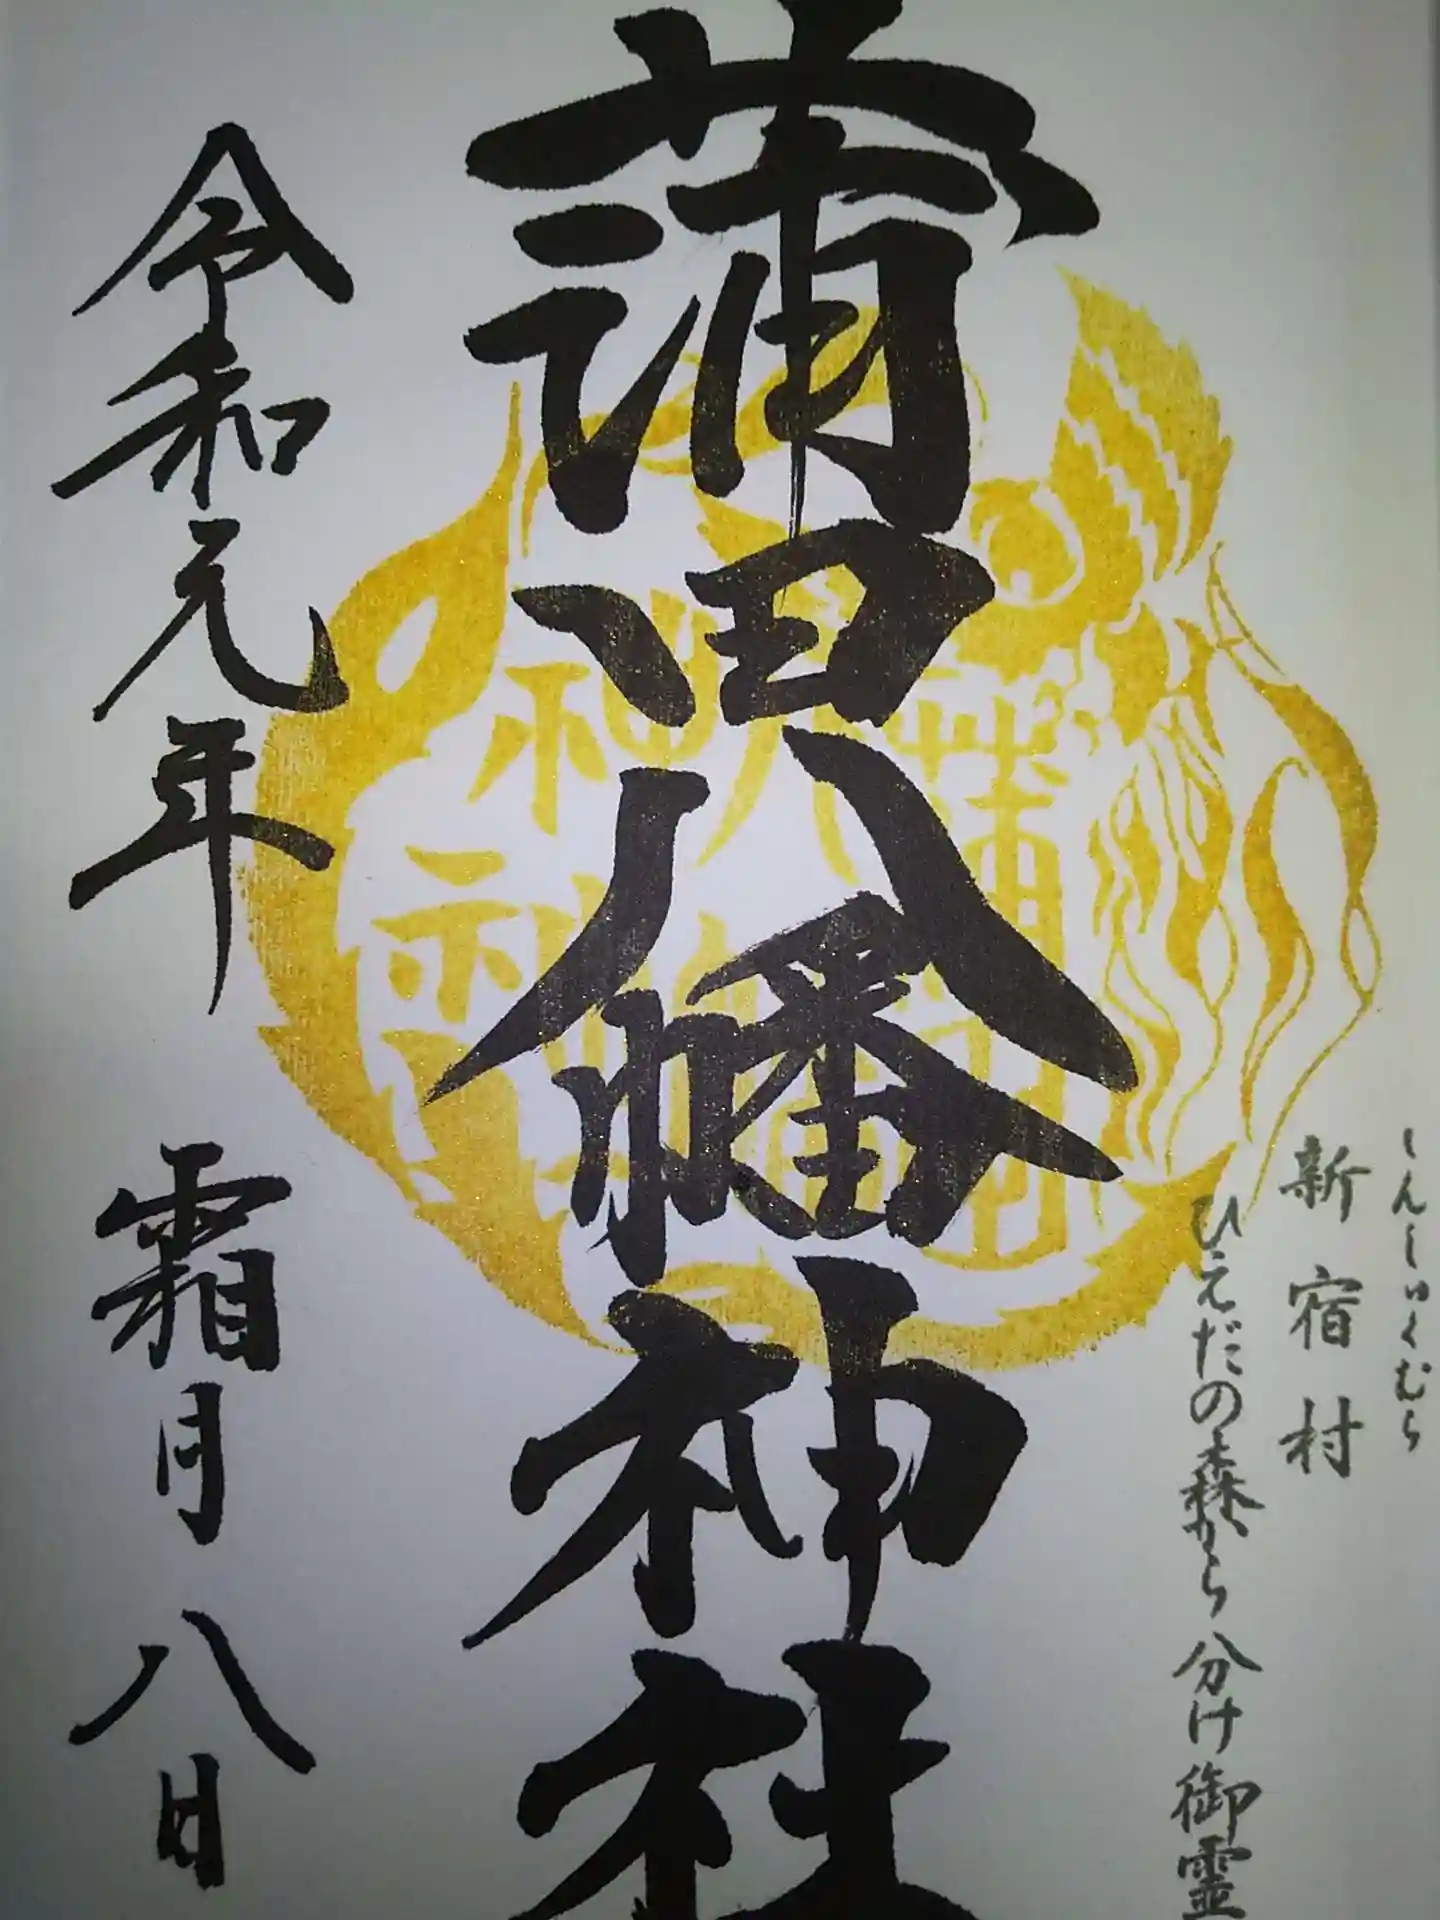 しんしゅくむら
新宿村
ひえだの森から分け御霊
蒲田八幡神社
蒲田八幡神社
令和元年 霜月八日